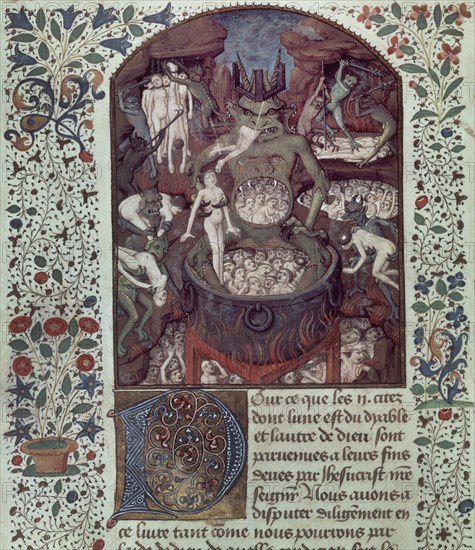 Pour ce que les ii. citez
dont lune est du dyable
et lautre de dieu sont
parvenues a leurs fins
deues par Ihesucrist nre
seignr Nous avons a
disputer diligement en
ce livre tant come nous pourrons par